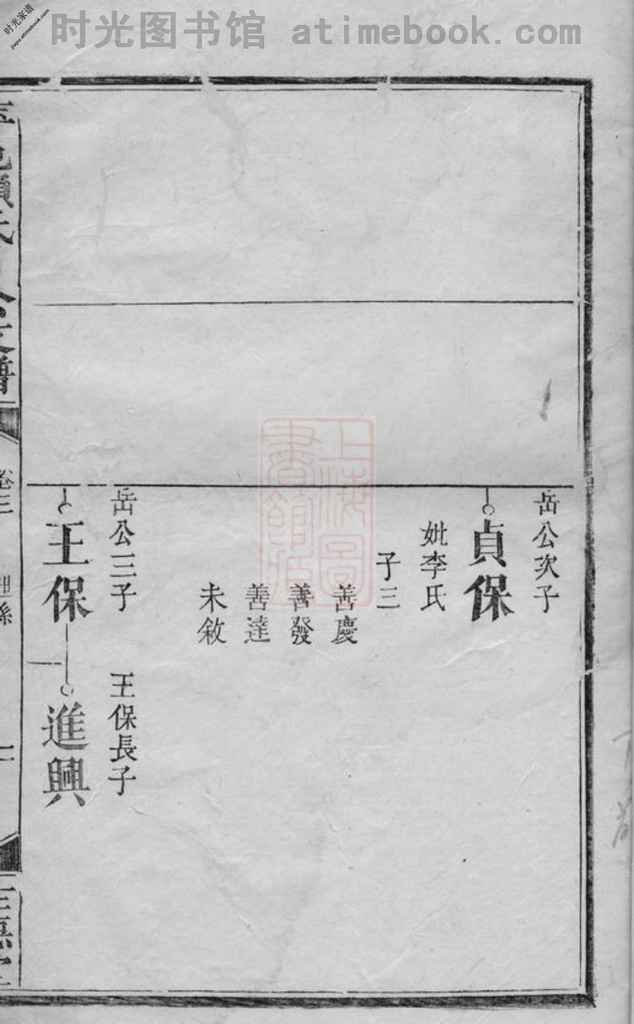 时光图书馆 atimebook.com
时光家谱
岳公次子
貞保
妣李氏
子三
善慶
善發
善達
未敘
岳公三子
王保
王保長子
進興
上海圖書館藏
卷三